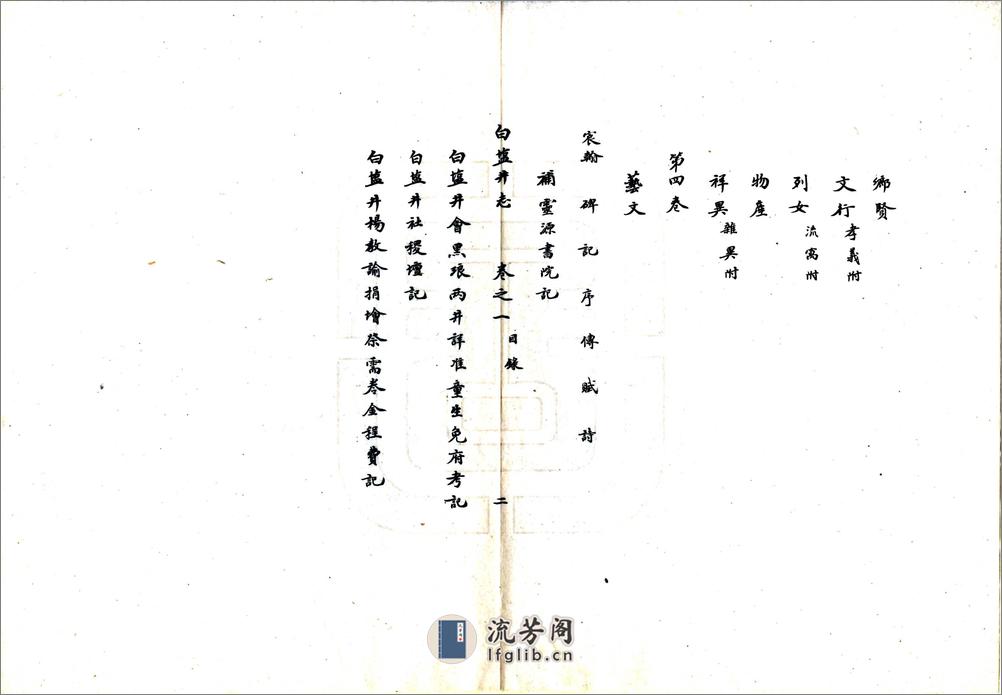 鄉賢
文行 孝義附
列女 流寓附
物產
祥異 雜異附
第四卷
藝文
宸翰 碑 記 序 傳 賦 詩
補靈源書院記
白盐井志 卷之一 目錄 二
白盐井會黑琅两井詳准童生免府考記
白盐井社稷壇記
白盐井楊教諭捐增祭需卷金程費記
流芳阁
lfglib.cn